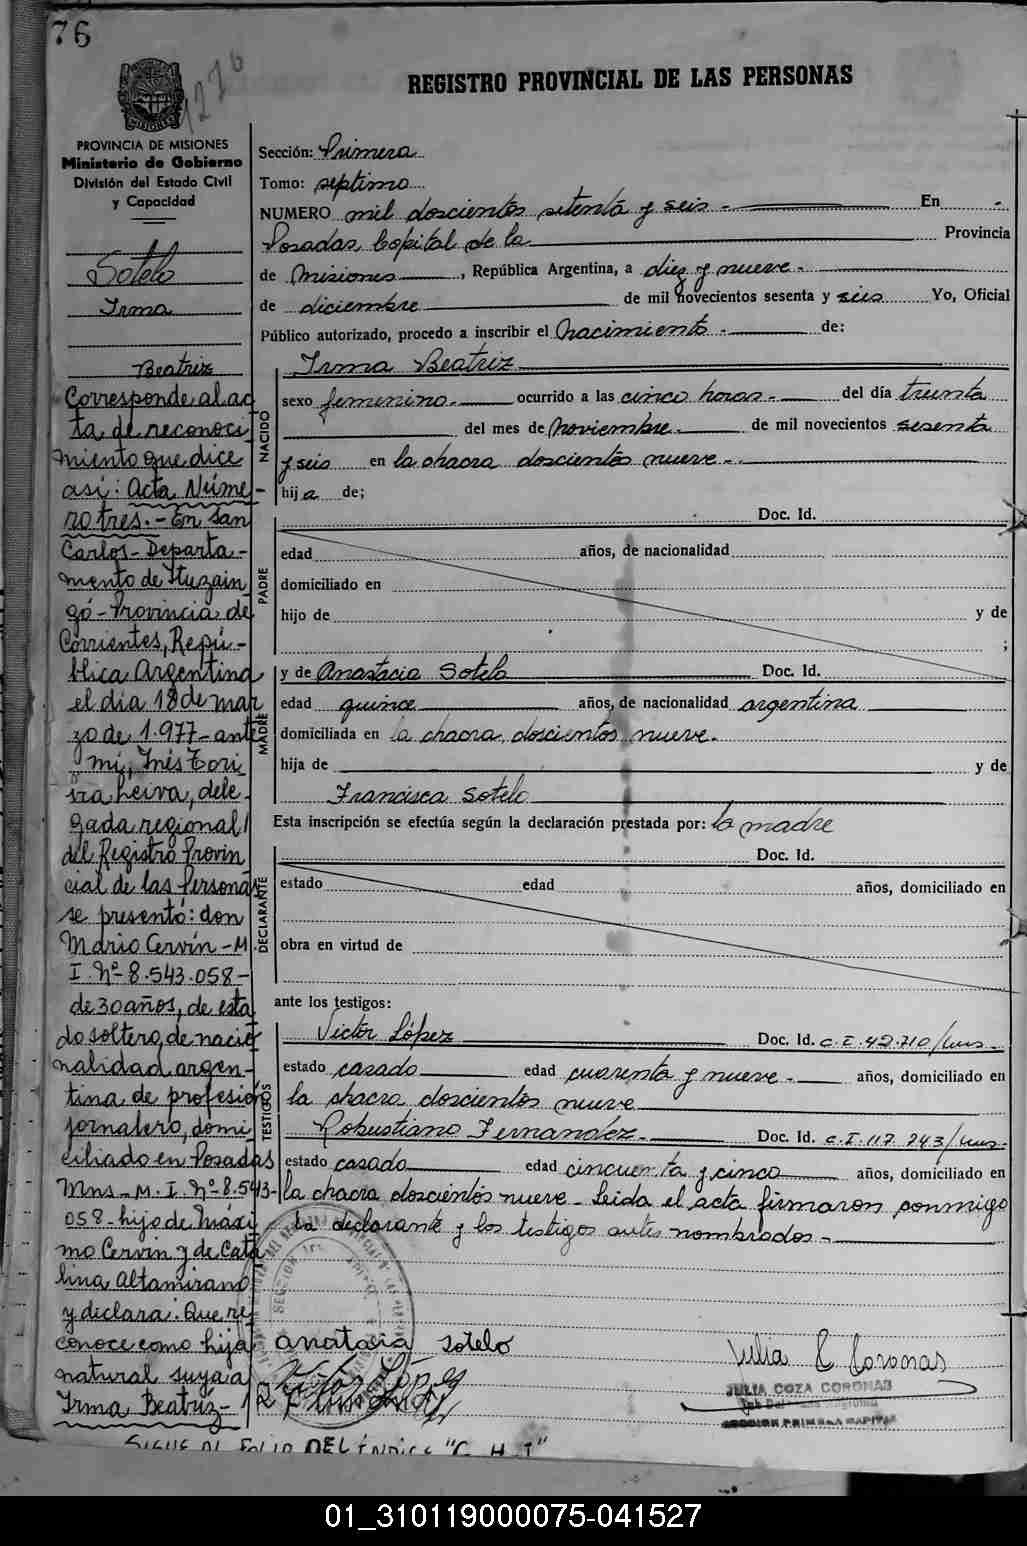 76
1276
REGISTRO PROVINCIAL DE LAS PERSONAS
MISIONES
PROVINCIA DE MISIONES
Ministerio de Gobierno
División del Estado Civil
y Capacidad
Sotelo
Irma
Beatriz
Corresponde al ac
ta de reconoci
miento que dice
así: Acta Núme-
ro tres.- En San
Carlos - Departa-
mento de Ituzain
gó - Provincia de
Corrientes, Repú-
blica Argentina
el día 18 de mar
zo de 1.977 - ante
mi, Inés
Leiva, dele
gada regional
del Registro Provin
cial de las Personas
se presentó: don
Mario Cervín - M.
I. Nº- 8.543.058 -
de 30 años, de esta
do soltero, de nacio
nalidad argen-
tina de profesión
jornalero, domi
ciliado en Posadas
Mns - M. I. Nº- 8.543-
058 - hijo de Máxi
mo Cervín y de Cata
lina Altamirano
y declara: Que re
conoce como hija
natural suya a
Irma Beatriz -
SIGUE AL FOLIO DEL ÍNDICE "G. H. I"
Sección: Primera
Tomo: septimo
NUMERO mil doscientos setenta y seis - En -
Posadas Capital de la Provincia
de Misiones, República Argentina, a diez y nueve -
de diciembre de mil novecientos sesenta y seis Yo, Oficial
Público autorizado, procedo a inscribir el Nacimiento - de:
Irma Beatriz
NACIDO
sexo femenino - ocurrido a las cinco horas - del día treinta
del mes de Noviembre - de mil novecientos sesenta
y seis en la chacra doscientos nueve -
hija de;
PADRE
Doc. Id.
edad años, de nacionalidad
domiciliado en
hijo de y de
;
MADRE
y de Anastacia Sotelo Doc. Id.
edad quince años, de nacionalidad argentina
domiciliada en la chacra doscientos nueve.
hija de y de
Francisca Sotelo
Esta inscripción se efectúa según la declaración prestada por: la madre
DECLARANTE
Doc. Id.
estado edad años, domiciliado en
obra en virtud de
ante los testigos:
TESTIGOS
Victor López Doc. Id. C.I. 42.710/Mns.
estado casado edad cuarenta y nueve - años, domiciliado en
la chacra doscientos nueve
Robustiano Fernandéz - Doc. Id. C.I. 117.743/Mns.
estado casado edad cincuenta y cinco años, domiciliado en
la chacra doscientos nueve - Leida el acta firmaron conmigo
la declarante y los testigos antes nombrados -
anatacia sotelo
Julia C Coronas
JULIA COZA CORONAS
SECCION PRIMERA CAPITAL
01_310119000075-041527